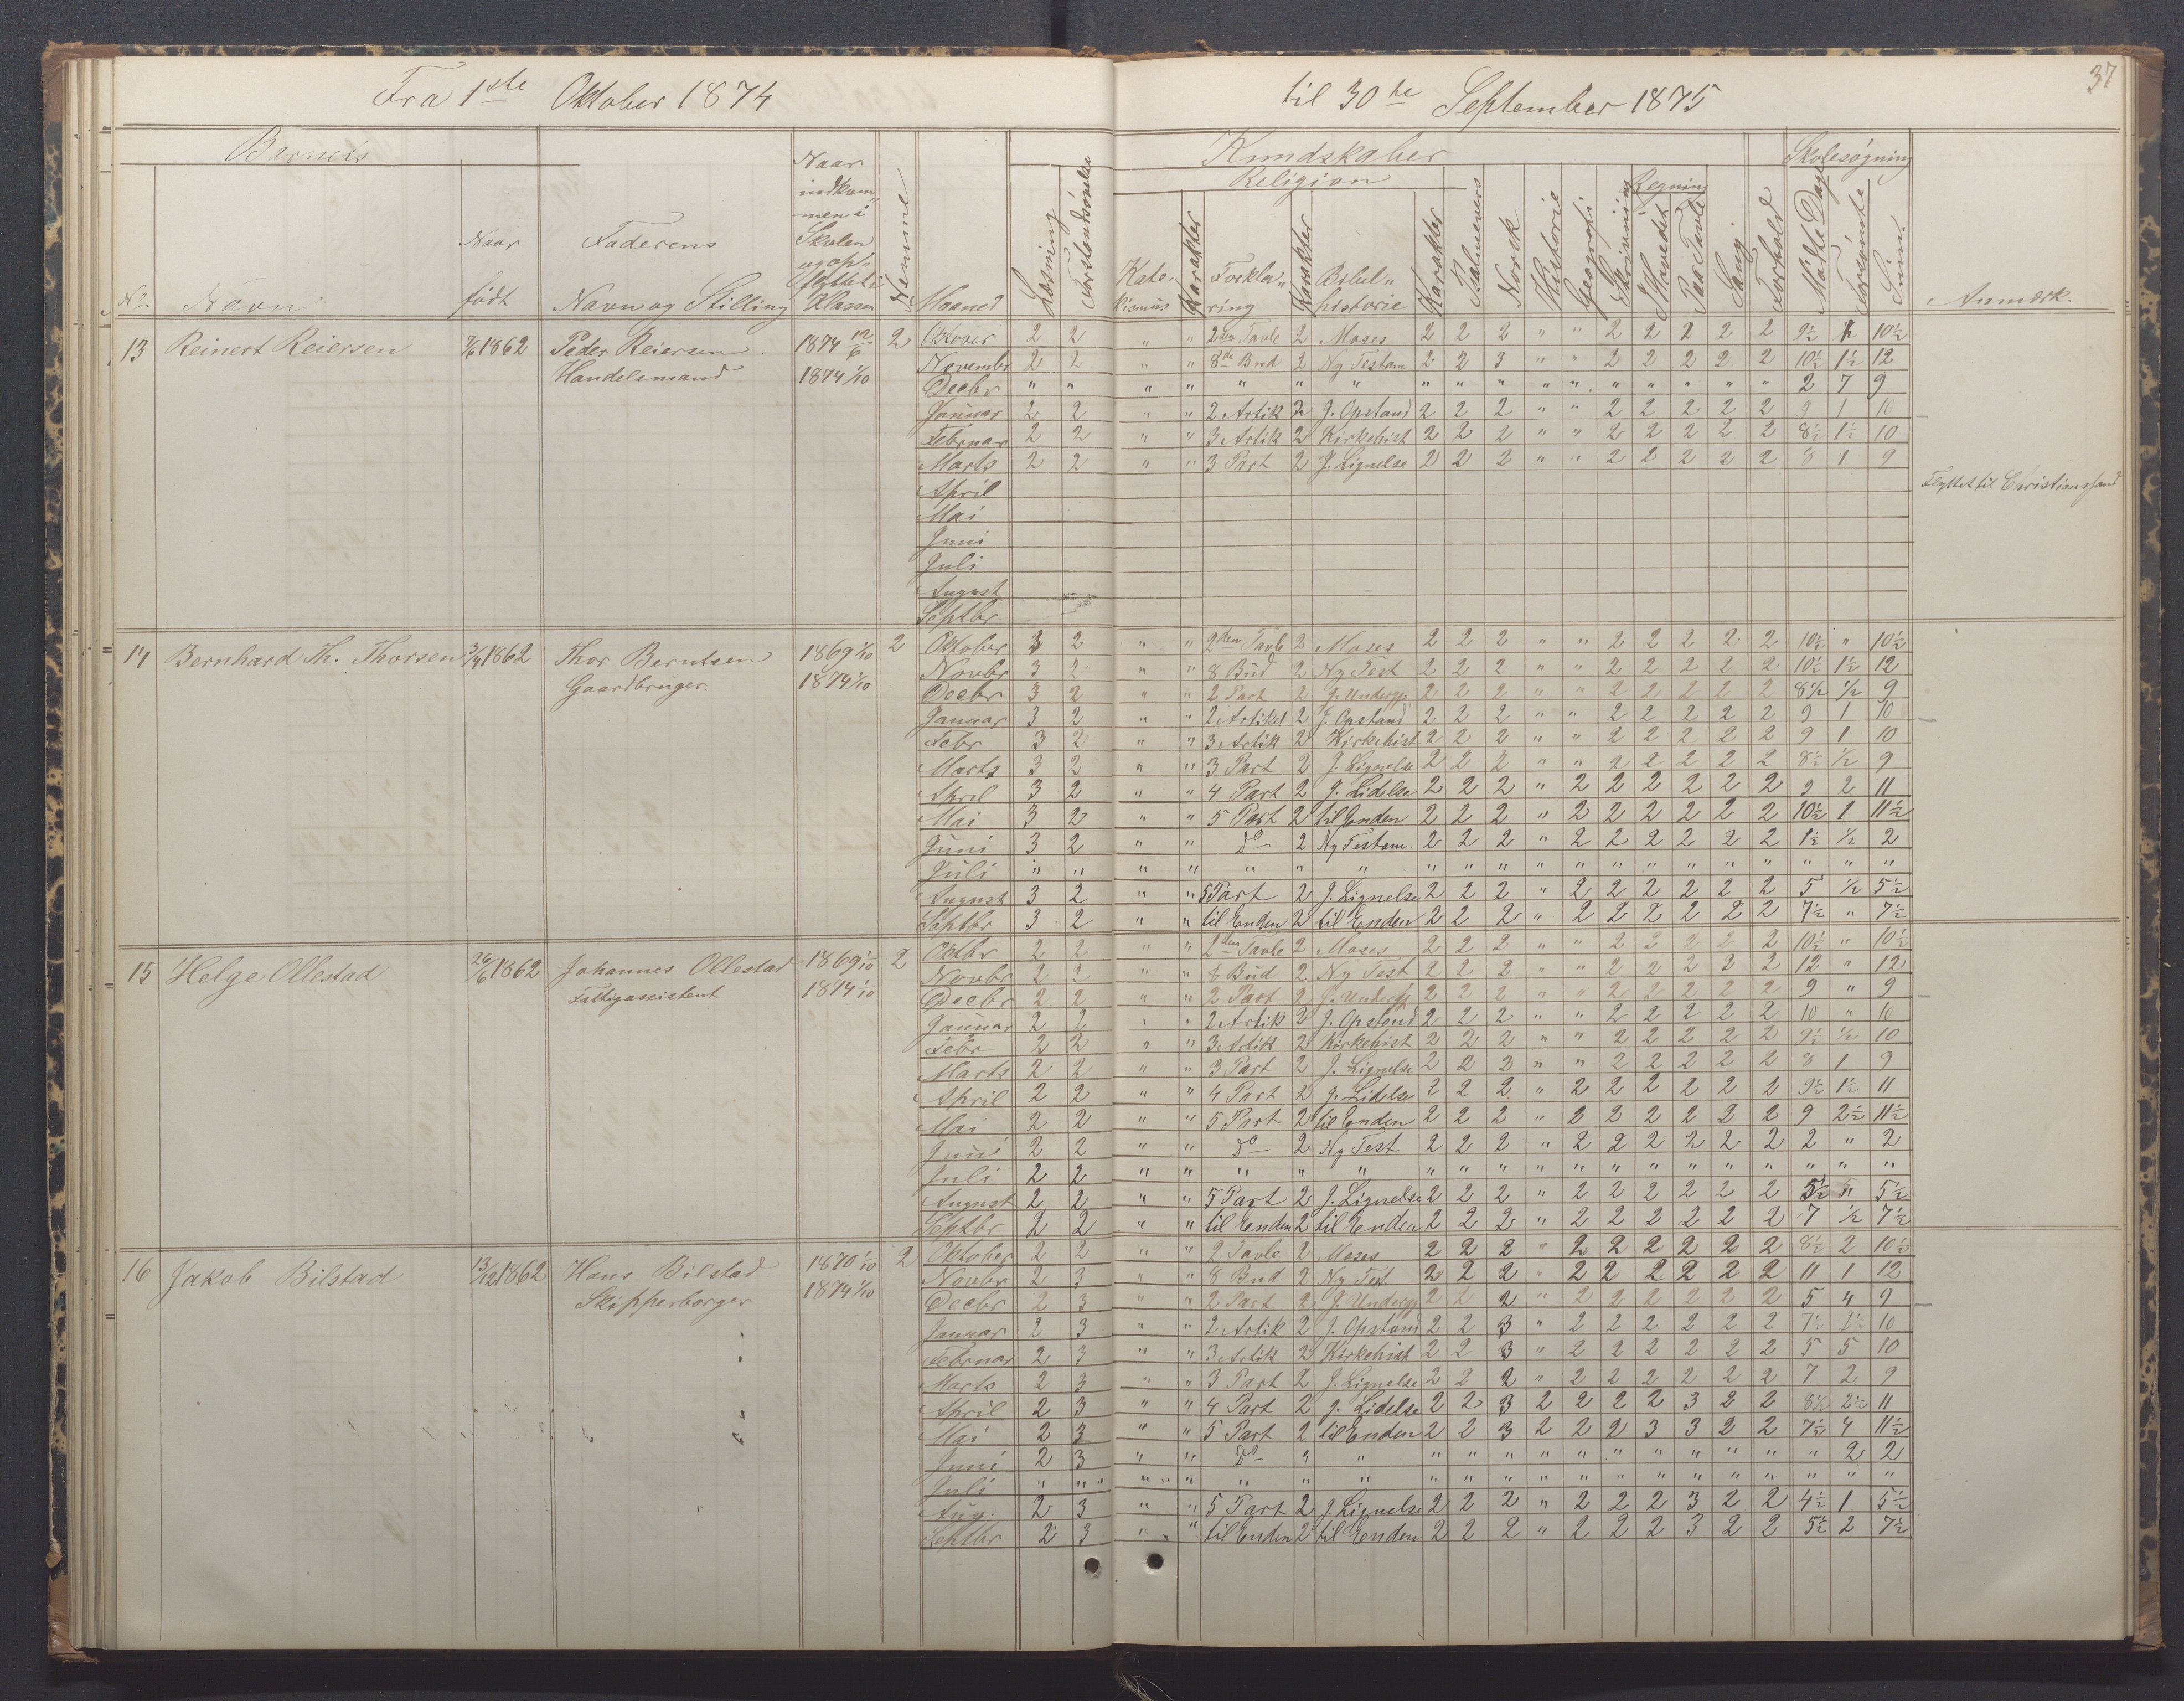 37
Fra 1ste Oktober 1874 til 30te September 1875
Barnets Kundskaber Skolesøgning
Religion Regning
No Navn Naar født Faderens Navn og Stilling Naar indkommen i Skolen og opflyttet i Klassen Nemme Maaned Læsning Forstandsøvelse Katekismus Karakter Forklaring Karakter Bibelhistorie Karakter Psalmevers Norsk Historie Geografi Skrivning I Hovedet Paa Tavle Sang Forhold Mødte Dage Forsømte Sum. Anmærk.
13 Reinert Reiersen 7/6 1862 Peder Reiersen 1874 12/6 2 Oktober 2 2 " " 2den Tavle 2 Moses 2 2 2 " " 2 2 2 2 2 9½ 1 10½
Handelsmand 1874 1/10 November 2 2 " " 8de Bud 2 Ny Testam 2 2 3 " " 2 2 2 2 2 10½ 1½ 12
Decbr " " " " " " " " " " " " " " " " " 2 7 9
Januar 2 2 " " 2 Artik 2 J. Opstand 2 2 2 " " 2 2 2 2 2 9 1 10
Februar 2 2 " " 3 Artik 2 Kirkehist 2 2 2 " " 2 2 2 2 2 8½ 1½ 10
Marts 2 2 " " 3 Part 2 J. Lignelse 2 2 2 " " 2 2 2 2 2 8 1 9
April Flyttet til Christianssand
Mai
Juni
Juli
August
Septbr
14 Bernhard Th. Thorsen 3/4 1862 Thor Berntsen 1869 1/10 2 Oktober 3 2 " " 2den Tavle 2 Moses 2 2 2 " " 2 2 2 2 2 10½ " 10½
Gaardbruger. 1874 1/10 Novbr 3 2 " " 8 Bud 2 Ny Test 2 2 2 " " 2 2 2 2 2 10½ 1½ 12
Decbr 3 2 " " 2 Part 2 J. Undergj 2 2 2 " " 2 2 2 2 2 8½ ½ 9
Januar 3 2 " " 2 Artikel 2 J. Opstand 2 2 2 " " 2 2 2 2 2 9 1 10
Febr 3 2 " " 3 Artik 2 Kirkehist 2 2 2 " " 2 2 2 2 2 9 1 10
Marts 3 2 " " 3 Part 2 J. Lignelse 2 2 2 " " 2 2 2 2 2 8½ ½ 9
April 3 2 " " 4 Part 2 J. Lidelse 2 2 2 " 2 2 2 2 2 2 9 2 11
Mai 3 2 " " 5 Part 2 til Enden 2 2 2 " 2 2 2 2 2 2 10½ 1 11½
Juni 3 2 " " Do 2 Ny Testam. 2 2 2 " 2 2 2 2 2 2 1½ ½ 2
Juli " " " " " " " " " " " " " " " " " " " "
August 3 2 " " 5 Part 2 J. Lignelse 2 2 2 " 2 2 2 2 2 2 5 ½ 5½
Septbr 3 2 " " til Enden 2 til Enden 2 2 2 " 2 2 2 2 2 2 7½ " 7½
15 Helge Ollestad 26/6 1862 Johannes Ollestad 1869 1/10 2 Oktbr 2 2 " " 2den Tavle 2 Moses 2 2 2 " " 2 2 2 2 2 10½ " 10½
Fattigassistent 1874 1/10 Novbr 2 2 " " 8 Bud 2 Ny Test 2 2 2 " " 2 2 2 2 2 12 " 12
Decbr 2 2 " " 2 Part 2 J. Undergj 2 2 2 " " 2 2 2 2 2 9 " 9
Januar 2 2 " " 2 Artik 2 J. Opstand 2 2 2 " " 2 2 2 2 2 10 " 10
Febr 2 2 " " 3 Artik 2 Kirkehist 2 2 2 " " 2 2 2 2 2 9½ ½ 10
Marts 2 2 " " 3 Part 2 J. Lignelse 2 2 2 " " 2 2 2 2 2 8 1 9
April 2 2 " " 4 Part 2 J. Lidelse 2 2 2 " 2 2 2 2 2 2 9½ 1½ 11
Mai 2 2 " " 5 Part 2 til Enden 2 2 2 " 2 2 2 2 2 2 9 2½ 11½
Juni 2 2 " " Do 2 Ny Test 2 2 2 " 2 2 2 2 2 2 2 " 2
Juli 2 2 " " " " " " " " " " " " " " " " " "
August 2 2 " " 5 Part 2 J. Lignelse 2 2 2 " 2 2 2 2 2 2 5½ " 5½
Septbr 2 2 " " til Enden 2 til Enden 2 2 2 " 2 2 2 2 2 2 7 ½ 7½
16 Jakob Bilstad 13/12 1862 Hans Bilstad 1870 1/10 2 Oktober 2 2 " " 2 Tavle 2 Moses 2 2 2 " 2 2 2 2 2 2 8½ 2 10½
Skipperborger 1874 1/10 Novbr 2 3 " " 8 Bud 2 Ny Test 2 2 2 " 2 2 2 2 2 2 11 1 12
Decbr 2 3 " " 2 Part 2 J. Undergj 2 2 2 " 2 2 2 2 2 2 5 4 9
Januar 2 3 " " 2 Artik 2 J. Opstand 2 2 3 " 2 2 2 2 2 2 7½ 2½ 10
Februar 2 3 " " 3 Artik 2 Kirkehist 2 2 3 " 2 2 2 2 2 2 5 5 10
Marts 2 3 " " 3 Part 2 J. Lignelse 2 2 2 " 2 2 2 2 2 2 7 2 9
April 2 3 " " 4 Part 2 J. Lidelse 2 2 3 2 2 2 2 3 2 2 8½ 2½ 11
Mai 2 3 " " 5 Part 2 til Enden 2 2 3 2 2 2 3 3 2 2 7½ 4 11½
Juni 2 3 " " Do " " " " " " " " " " " " " 2 2
Juli " " " " " " " " " " " " " " " " " " " "
Aug. 2 3 " " 5 Part 2 J. Lignelse 2 2 2 " 2 2 2 3 2 2 4½ 1 5½
Septbr 2 3 " " til Enden 2 til Enden 2 2 2 " 2 2 2 3 2 2 5½ 2 7½